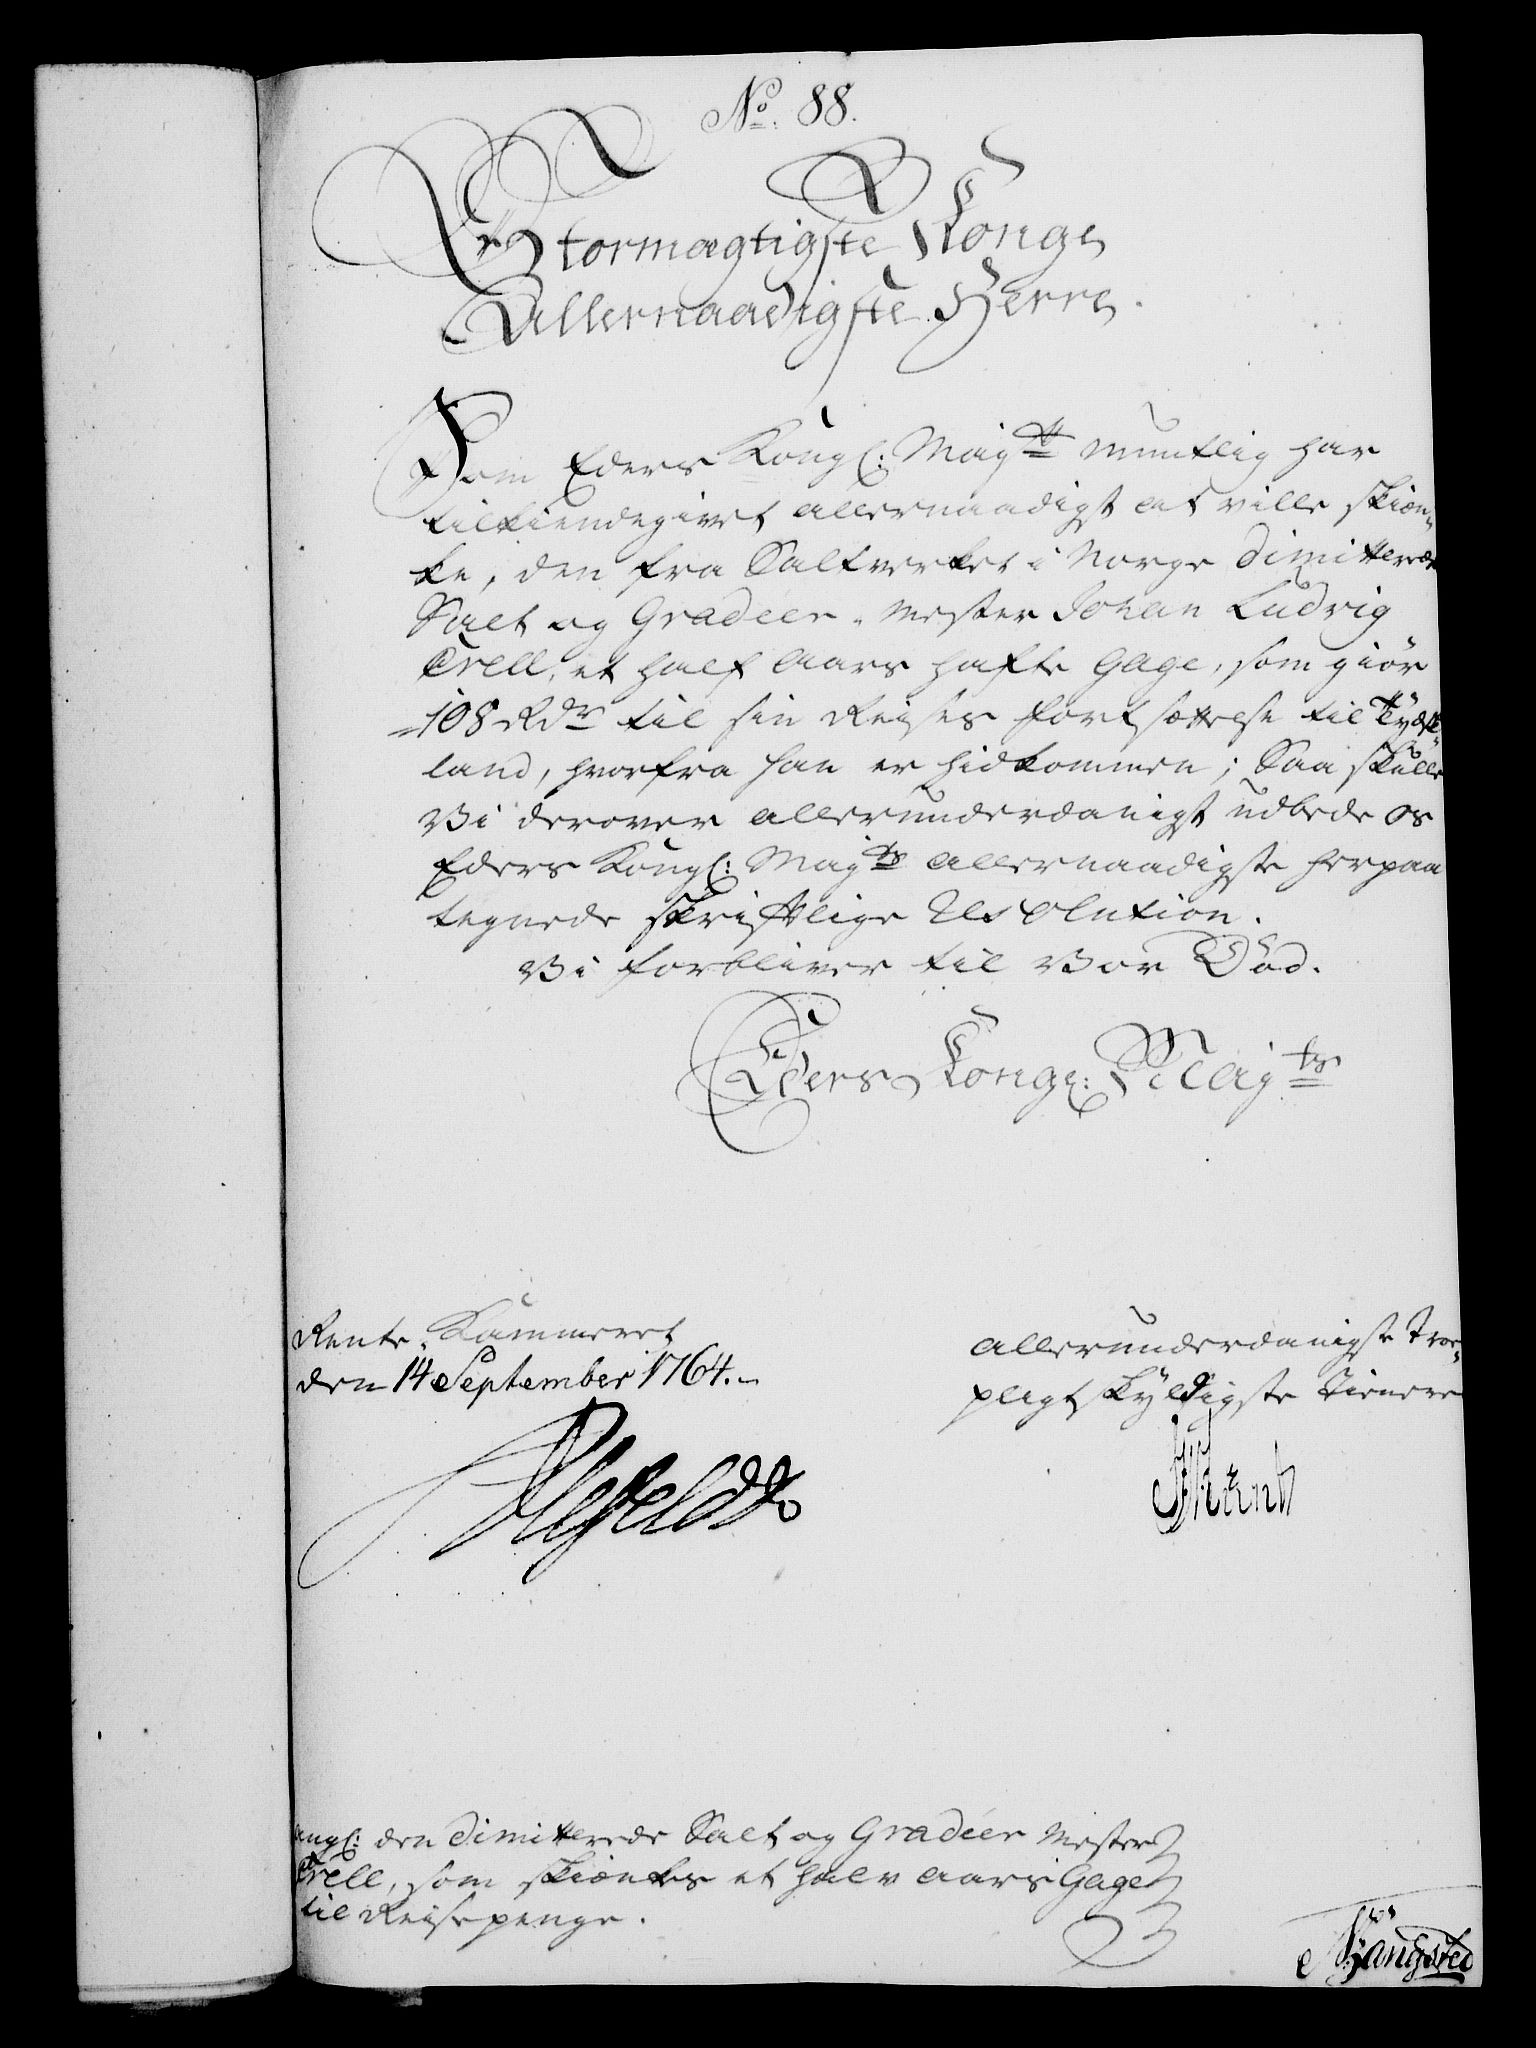 No. 88.
Stormægtigste Konge
Allernaadigste Herre.
Som Eders Kongl: Maytt mundtlig har
tilkiendegivet allernaadigst at ville skiæn-
ke, den fra Saltverket i Norge dimitterede
Salt og Gradeer-Mester Johan Ludvig
Crell, et half Aars hafte Gage, som giör
108 Rdr til sin Reises fortsættelse til Tydsk-
land, hvorfra han er hidkommen; Saa skulle
Vi derover allerunderdanigst udbede os
Eders Kongl: Mayts allernaadigste herpaa
tegnede skriftlige Resolution.
Vi forbliver til Vor Död.
Eders Kongl: Mayts
Rente-Kammeret
den 14 September 1764.
allerunderdanigste Troe-
pligtskyldigste Tienere
Ahlefeldt
angl: den dimitterede Salt og Gradéer Mester
Crell, som skiænkes et halv Aars Gage
til Reisepenge.